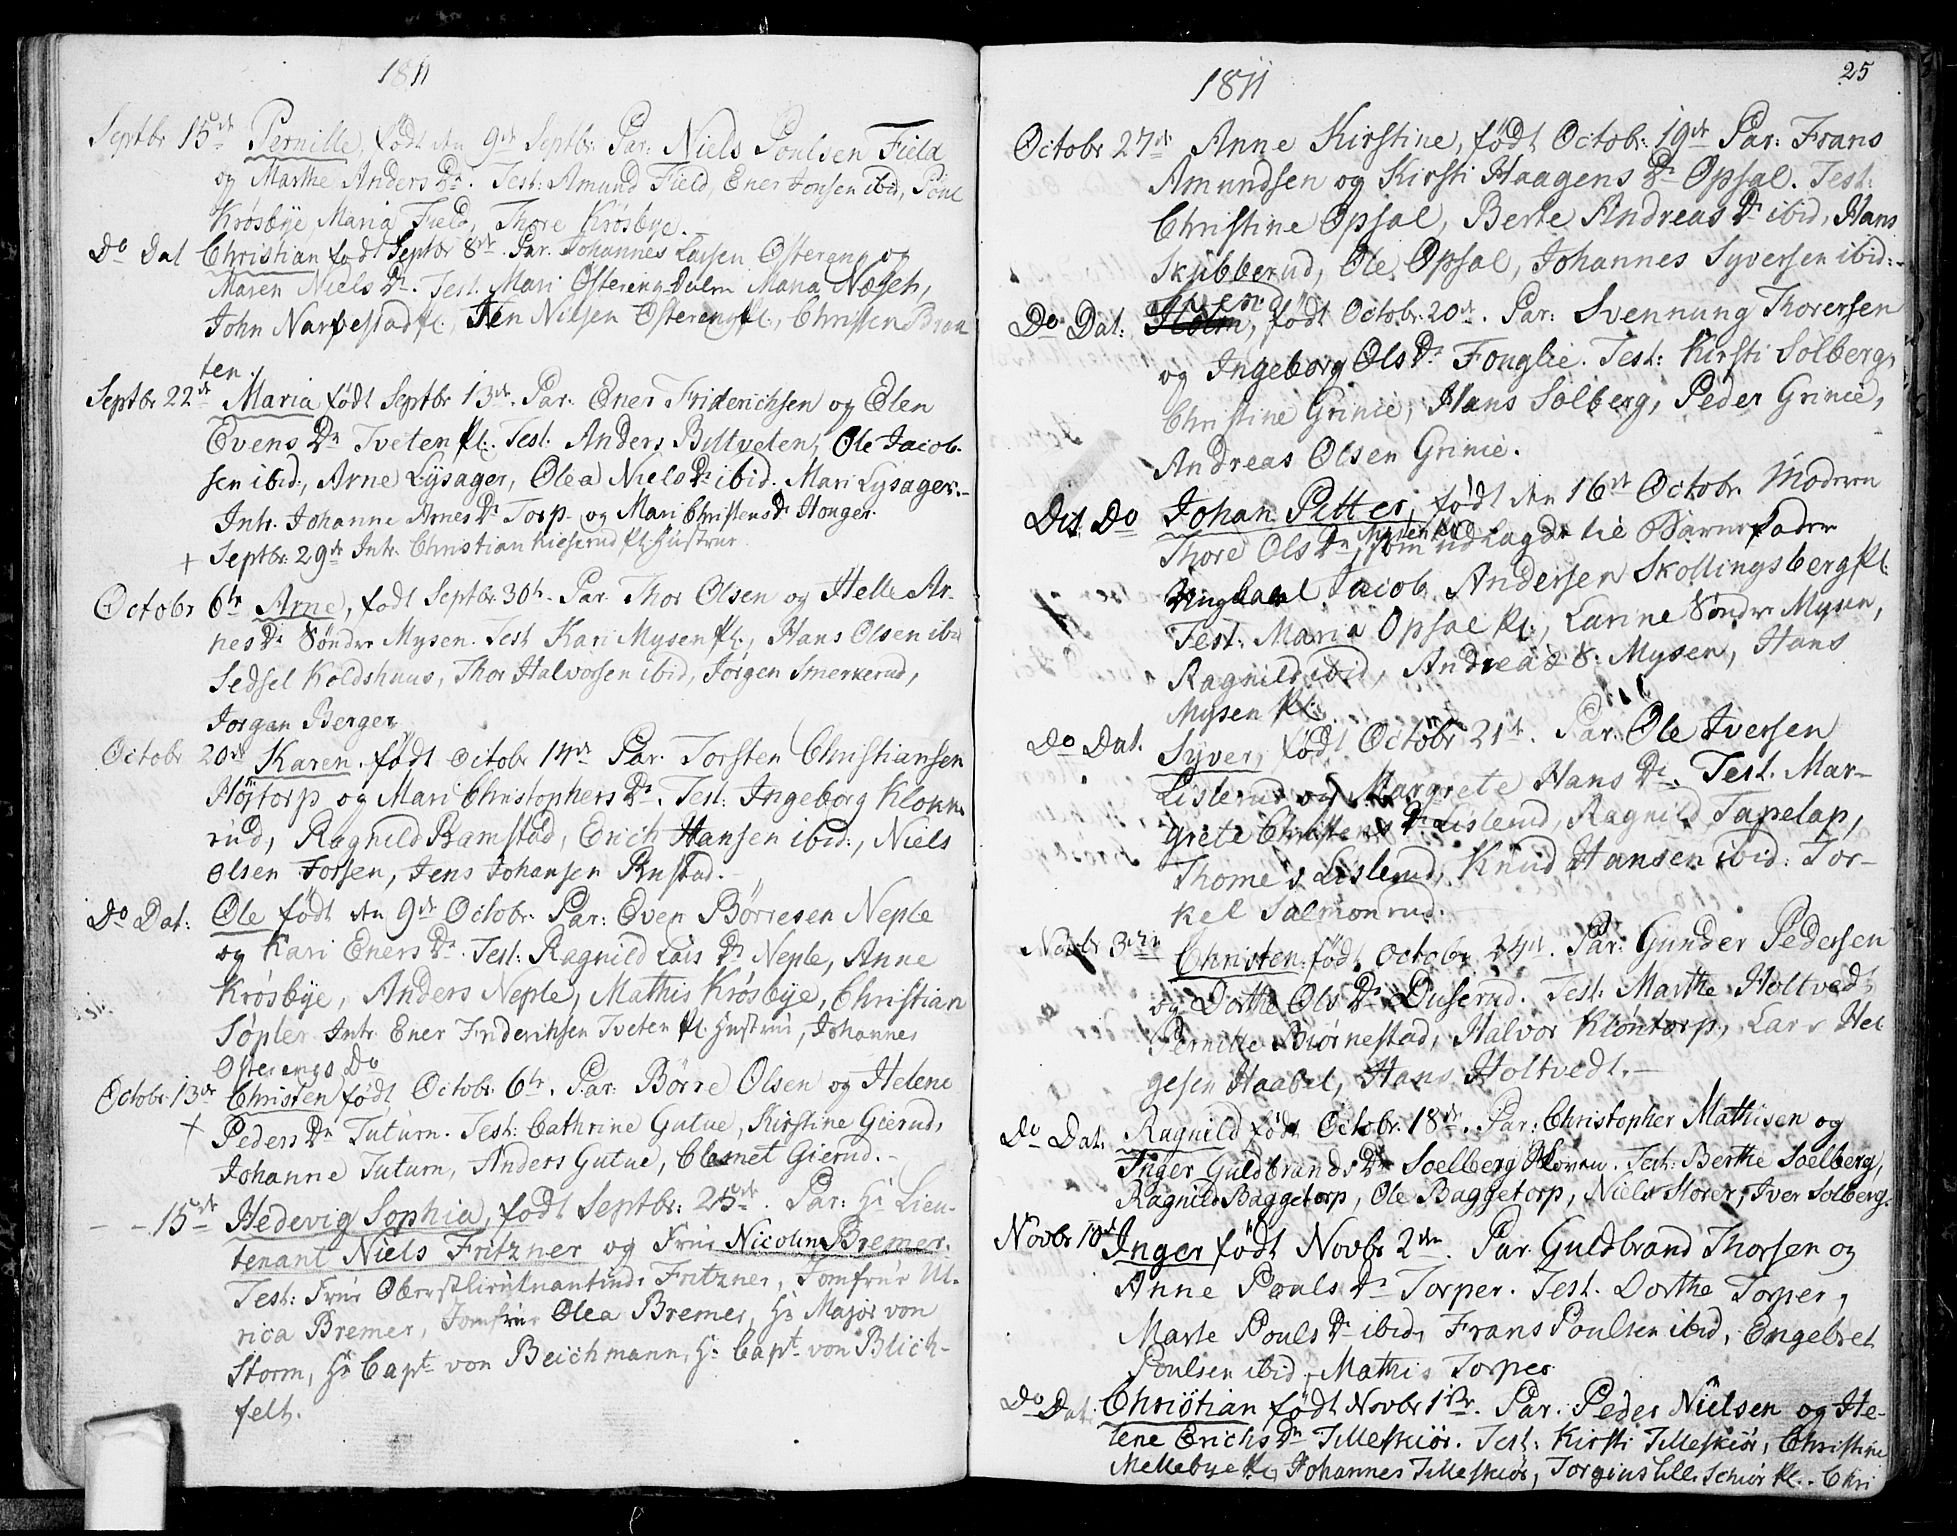 1811
Septbr 15de Pernille, født den 9de Septbr. Par: Niels Poulsen Field
og Marthe Anders Dr. Test: Amund Field, Ener Jonsen ibid, Poul
Krøsbÿe Maria Field, Thore Krøsbye.
Do Dat Christian født Septbr 8de. Par. Johannes Larsen Østereng og
Maren Niels Dr. Test. Mari Østereng Maria Næseh,
John Narvestad pl., Jen Nilsen Østereng pl., Christen Braa
ten.
Septbr 22de Maria født Septbr 13de. Par. Ener Friderichsen og Elen
Evens Dr Tveten pl. Test. Anders Biltveten, Ole Jacob-
sen ibid, Arne Lÿsager, Olea Niels Dr ibid. Mari Lysager.-
Intr. Johanne Arnes Dr Torp og Mari Christens Dr Honger.
+ Septbr. 29de Intr. Christian Kieserud pl. Hustrue
Octobr 6te Arne, født Septbr. 30te. Par Thor Olsen og Helle Ar-
nes Dr Søndre Mysen. Test Kari Mysen pl., Hans Olsen ibid
Sedsel Koldshuus, Thor Halvorsen ibid, Jørgen Smerkerud,
Jørgan Berger
Octobr 20de Karen. født Octobr 14de Par. Torsten Christiansen
Høÿtorp og Mari Christophers Dr. Test: Ingeborg Klokke
rud, Ragnild Ramstad, Erich Hansen ibid., Niels
Olsen Forsen, Jens Johansen Rustad.-
Do Dat: Ole født den 9de Octobr. Par: Even Børresen Neple
og Kari Eners Dr. Test: Ragnild Lars Dr Neple, Anne
Krøsbÿe, Anders Neple, Mathis Krøsbÿe, Christian
Søpler Intr. Ener Friderichsen Tveten pl. Hustrue, Johannes
Østerengs Do
Octobr. 13de Christen født Octobr. 6te. Par: Børre Olsen og Helene
+ Peders Dr Tuturn. Test: Cathrine Gutue, Kirstine Gierud,
Johanne Tuturn, Anders Gutue, Clemet Gierud.-
- - 15de Hedevig Sophia, født Septbr: 25de. Par: Hr Lieu-
tenant Niels Fritzner og Frue Nicoline Bremer.
Test: Frue Oberstlieutnantinde Fritzner, Jomfrue Ul-
rica Bremer, Jomfrue Olea Bremer, Hr Major von
Storm, Hr Capt von Beichmann, Hr Capt von Blich-
felt.
25
1811
Octobr 27de Anne Kirstine, født Octobr. 19de Par: Frans
Amundsen og Kirsti Haagens Dr Opsal. Test:
Christine Opsal, Berte Andreas Dr ibid, Hans
Skjibberud, Ole Opsal, Johannes Syversen ibid:-
Svend
Do Dat: Holm, født Octobr. 20de. Par: Svennung Thorersen
og Ingeborg Ols Dr Fouglie. Test: Kirsti Solberg,
Christine Grinie, Hans Solberg, Peder Grinie,
Andreas Olsen Grinie.
Dit. Do Johan Petter, født den 16de Octobr. Moderen
Thore Ols Dr Mysen pl. som udlagde til Barnefader
Ungkarl Jacob Andersen Skollingsberg pl.
Test: Maria Opsal pl., Larine Søndre Mysen,
Ragnild ibid, Andreas S. Mysen, Hans
Mysen pl.
Do Dat. Syver, født Octobr 21de. Par: Ole Iversen
Lislerud og Margrete Hans Dr. Test. Mar-
grete Christens Dr Lislerud, Ragnild Tapelap,
Thomes Lislerud, Knud Hansen ibid. Tor-
kel Salmonrud.
Novbr 3die Christen. født Octobr 24de. Par: Gunder Pedersen
og Dorthe Ols Dr Duserud. Test. Marthe Holtvedt
Pernille Biørnestad, Halvor Kløntorp, Lars Hel
gesen Haabel, Hans Holtvedt.-
Do Dat. Ragnild født Octobr. 18de. Par: Christopher Mathisen og
Inger Guldbrands Dr Soelberg. Test: Berthe Soelberg,
Ragnild Baggetorp, Ole Baggetorp, Niels Storer, Iver Solberg.
Novbr 10de Inger født Novbr 2den. Par. Guldbrand Thorsen og
Anne Pouls Dr Torper. Test. Dorthe Torper,
Marte Pouls Dr ibid, Frans Poulsen ibid, Engebret
Poulsen ibid, Mathis Torper
Do Dat: Christian født Novbr 1ste. Par. Peder Nielsen og He-
lene Erichs Dr Tilleskiør. Test: Kirsti Tilleskiør, Christine
Mellebye pl, Johannes Tilleskiør, Jørgins Tilleschiør pl. Chri